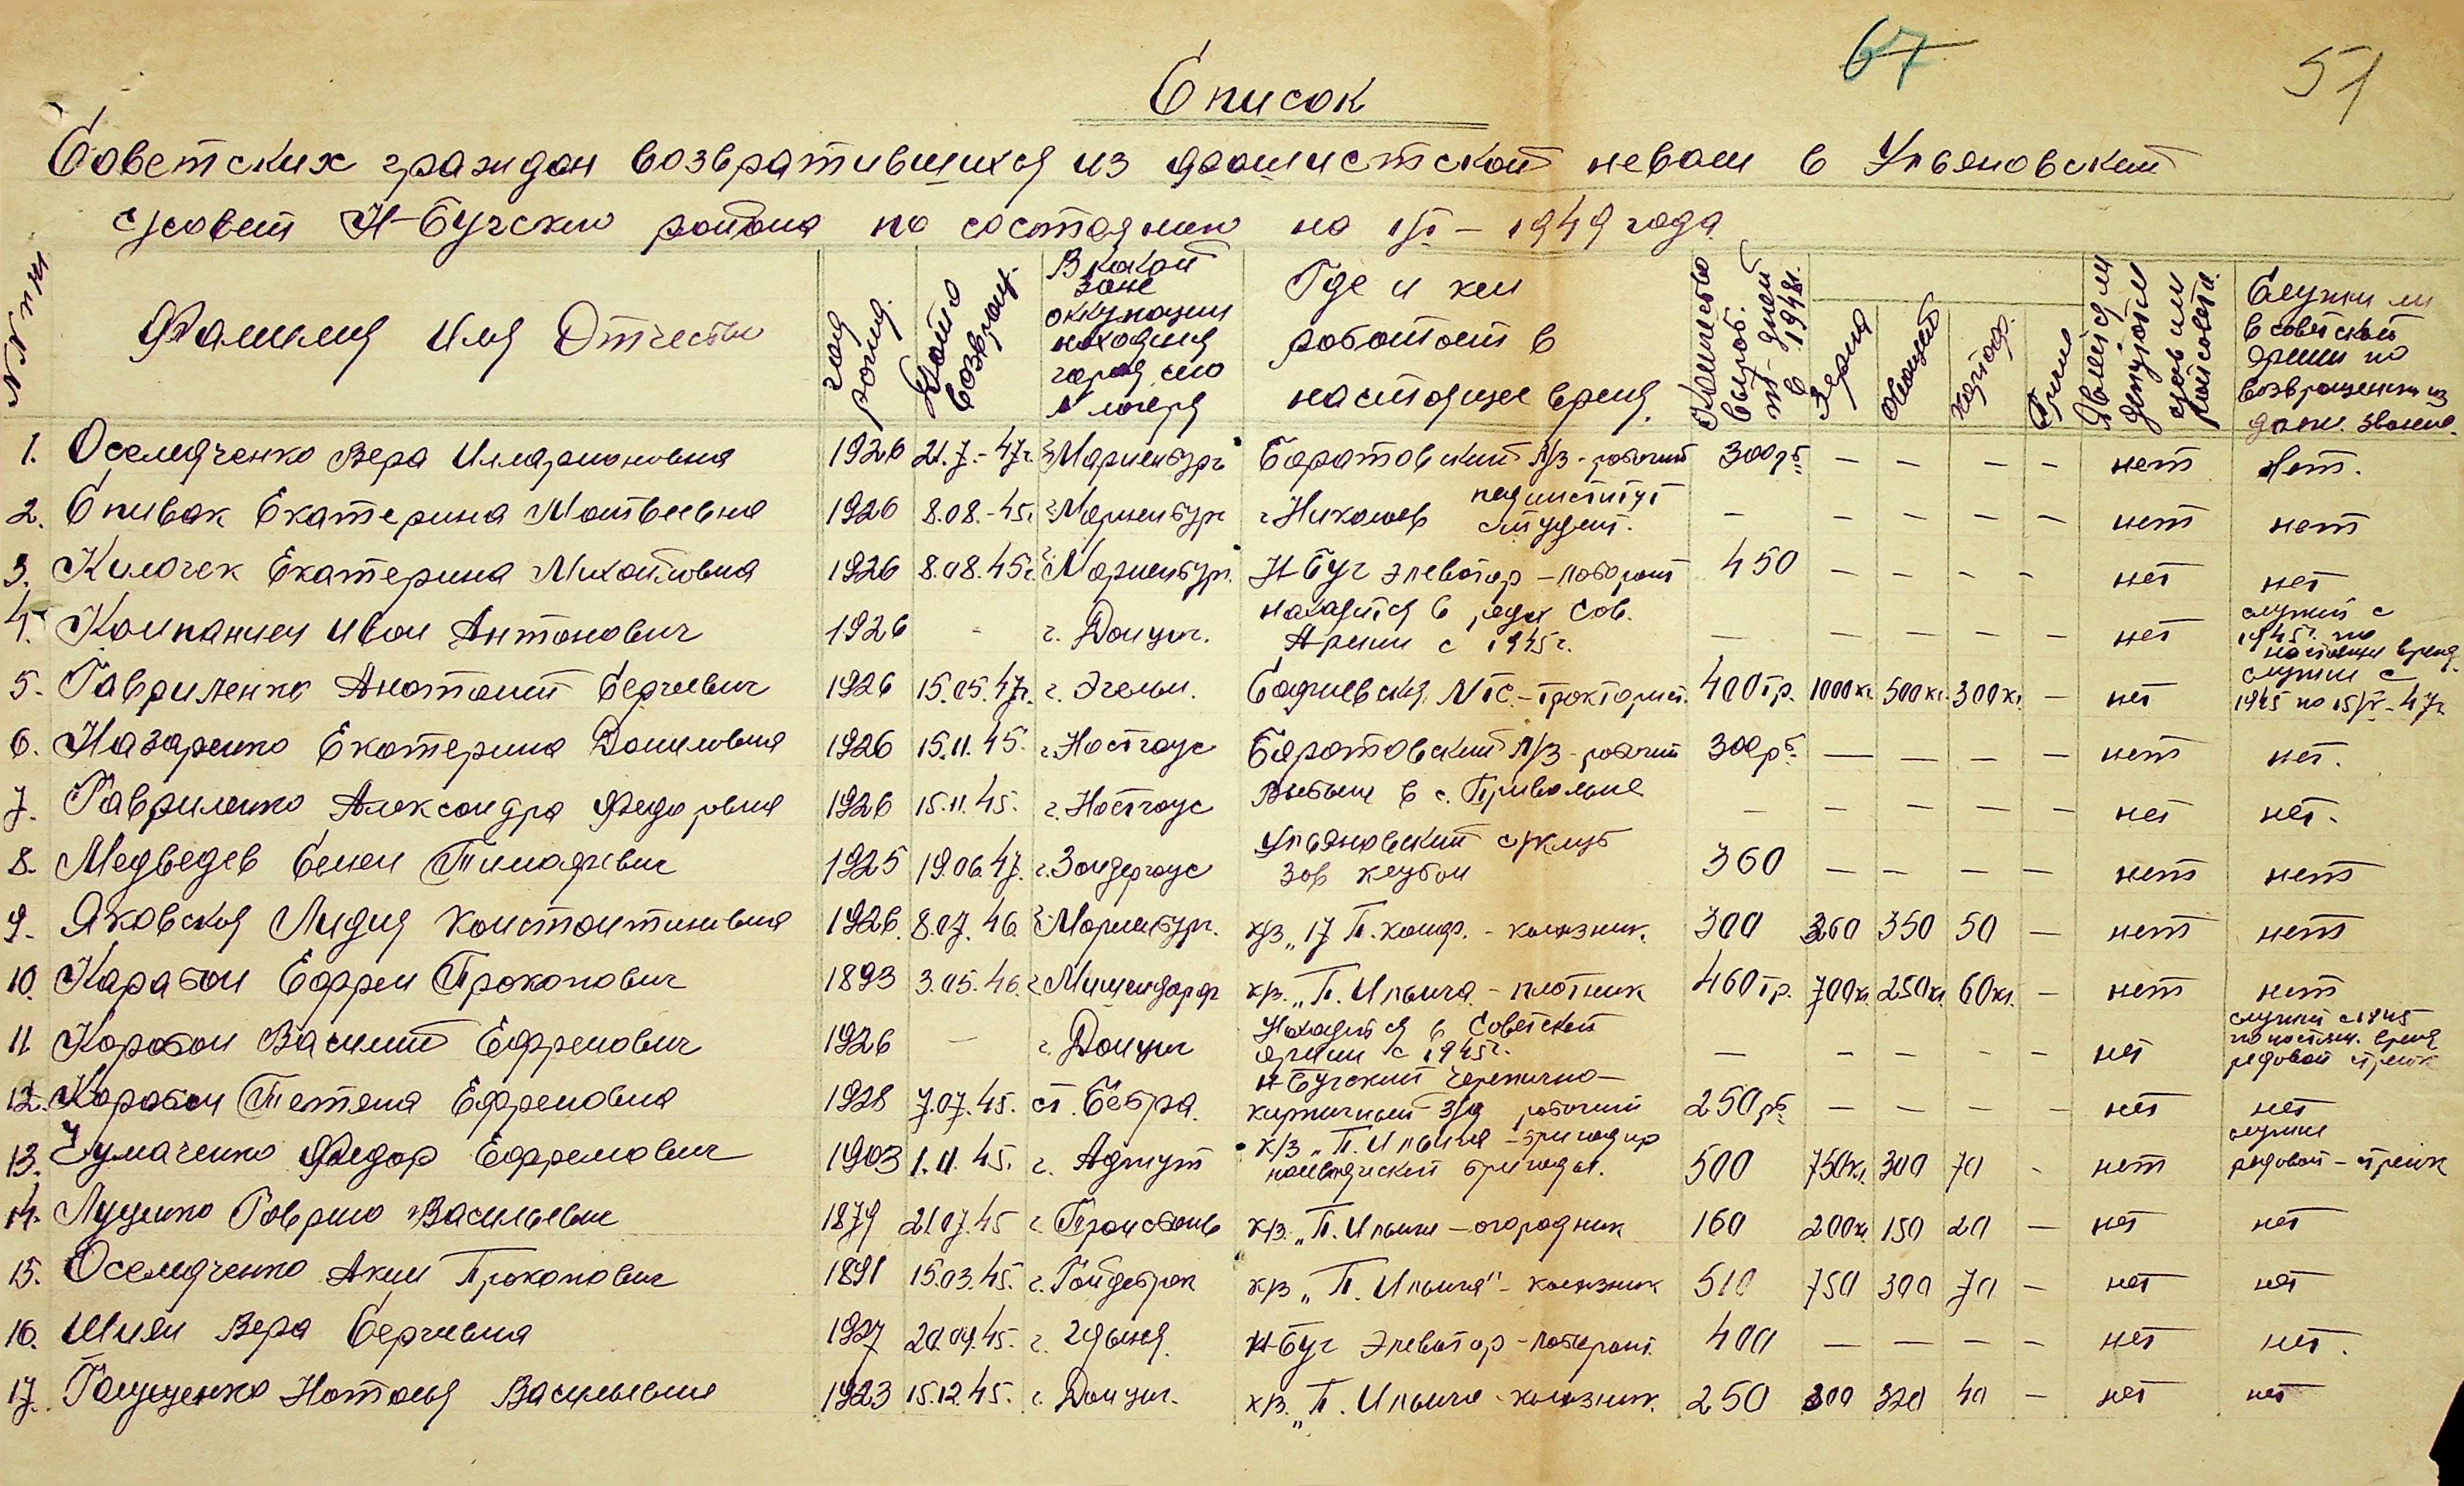 67
51
Список
Советских граждан возвратившихся из фашистской неволи в Ульяновский
с/совет Н-Бугского района по состоянию на 1/VI – 1949 года
№№ п/п
Фамилия Имя Отчество
год рожд.
Дата возвращ.
В какой зоне оккупации находился город, село и лагерь
Где и кем работает в настоящее время.
Количество выраб. тр-дней в 1948г.
Зерна
Овощей
картоф.
Является депутатом с/сов или райсовета.
Служил ли в советской армии по возвращении из
1. Оселядченко Вера Илларионовна 1926 21.7.-47г. г. Мариенбург Баратовский П/З - рабочий 300 рб. — — — — нет Нет.
2. Спивак Екатерина Матвеевна 1926 8.08.-45г. г. Мариенбург г. Николаев пединститут студент. — — — — — нет нет
3. Килочек Екатерина Михайловна 1926 8.08.45г. г. Мариенбург. Н-Буг элеватор – лаборант 450 — — — — нет нет
4. Компаниец Иван Антонович 1926 - г. Данциг. находится в рядах Сов. Армии с 1945г. — — — — — нет служит с 1945г. по настоящее время.
5. Гавриленко Анатолий Сергеевич 1926 15.05.47г. г. Эгельн. МТС – тракторист. 400 тр. 1000 кг. 500 кг. 300 кг. — нет служил с 1945 по 15/V-47г.
6. Назаренко Екатерина Даниловна 1926 15.11.45. г. Настгаус Баратовский П/З - рабочий 300 рб. — — — — нет нет.
7. Гавриленко Александра Федоровна 1926 15.11.45. г. Настгаус Выбыла в с. Привольне — — — — — нет нет.
8. Медведев Семен Тимофеевич 1925 19.06.47. г. Зондергаус Ульяновский с/клуб зав клубом 360 — — — — нет нет
9. Яковская Лидия Константиновна 1926. 8.07.46. г. Мариенбург. к/з „17 П. конф. - колхозник. 300 360 350 50 — нет нет
10. Карабан Ефрем Прокопович 1893 3.05.46. г. к/з. „П. Ильича - плотник 460 тр. 700 кг. 250 кг. 60 кг. — нет нет
11 Карабан Василий Ефремович 1926 — г. Данциг Находится в Советской армии с 1945г. — — — — — нет служит с 1945 по настоящ. время рядовой стрелок
12. Карабан Тетяна Ефремовна 1928 7.07.45. ст. Бебра. Н-Бугский черепично-кирпичный з/д рабочий 250 рб. — — — — нет нет
13. Чумаченко Федор Ефремович 1903 1.11.45. г. к/з „П. Ильича – бригадир бригады. 500 750 кг. 300 70 - нет служил рядовой – стрелок
14. Луценко Гаврило Васильевич 1879 21.07.45 г. к/з. „П. Ильича – огородник 160 200 кг. 150 20 — нет нет
15. Оселядченко Аким Прокопович 1891 15.03.45. г. к/з „П. Ильича" - колхозник 510 750 300 70 — нет нет
16. Шиян Вера Сергеевна 1927 20.09.45. г. Гдыня. Н-Буг элеватор - лаборант. 400 — — — — нет нет.
17. Гащенко Наталья Васильевна 1923 15.12.45. г. Данциг. к/з. „П. Ильича - колхозник. 250 300 320 40 — нет нет